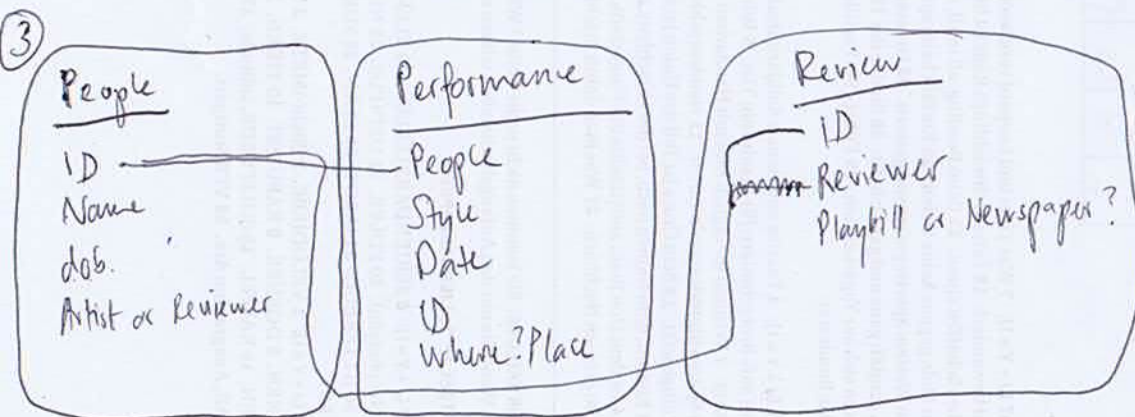 3
People
ID
Name
dob.
Artist or Reviewer
Performance
People
Style
Date
ID
Where? Place
Review
ID
Reviewer
Playbill or Newspaper?